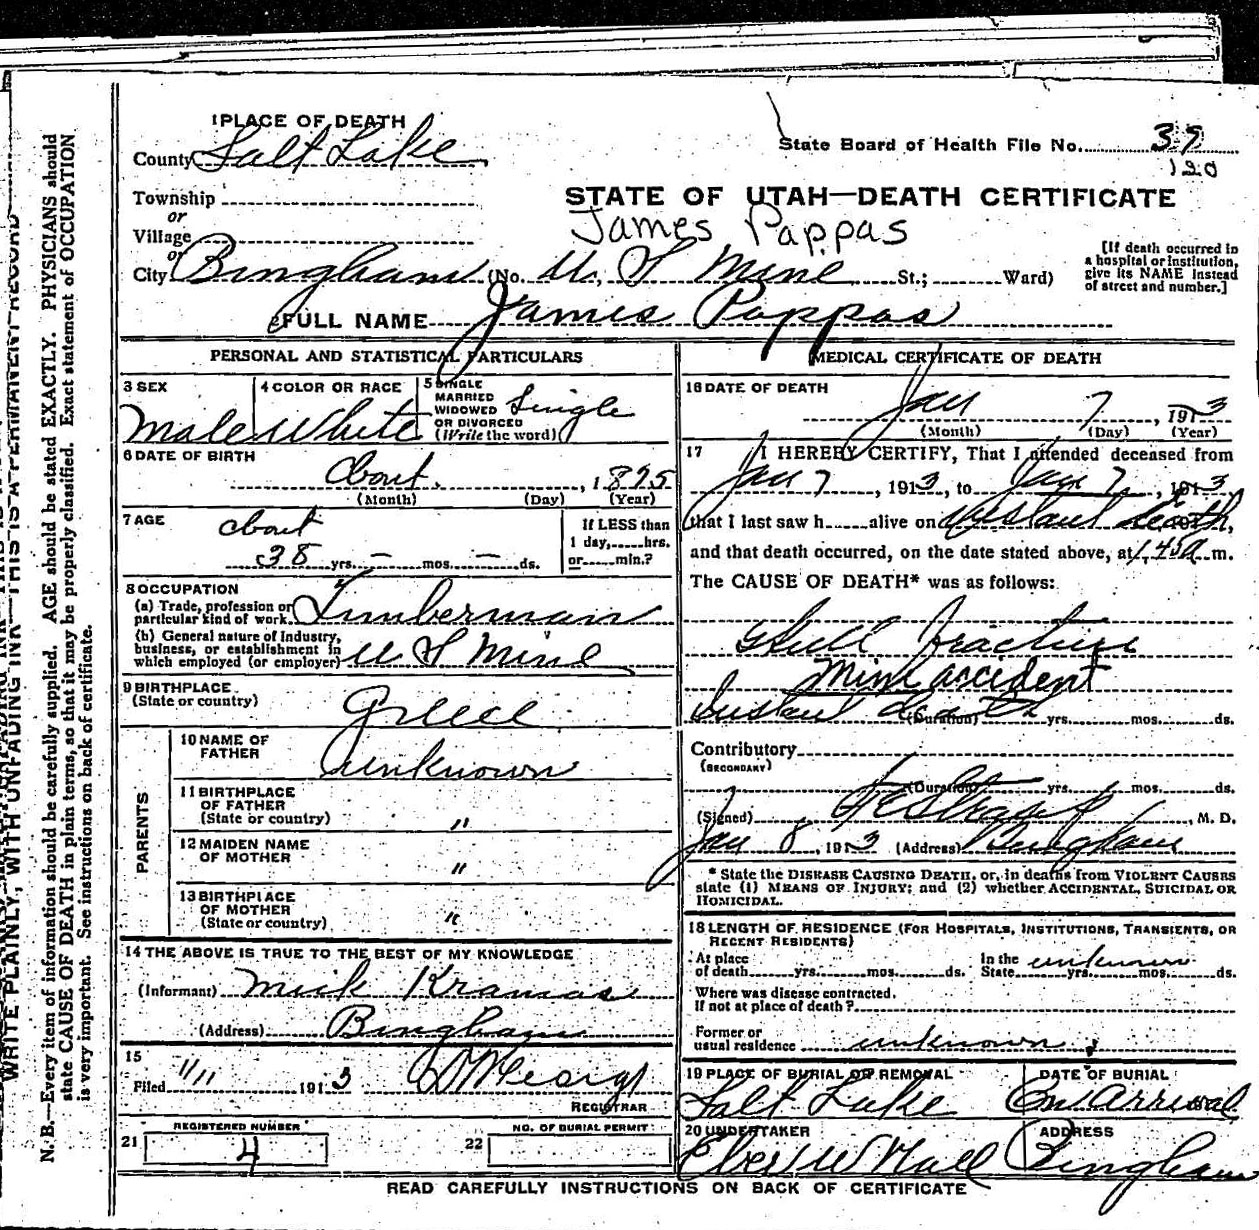 1 PLACE OF DEATH
County Salt Lake
State Board of Health File No. 37
120
Township
or
Village
or
City Bingham (No. U. S Mine St.; Ward)
STATE OF UTAH—DEATH CERTIFICATE
James Pappas
[If death occurred in
a hospital or institution,
give its NAME instead
of street and number.]
2 FULL NAME James Pappas
PERSONAL AND STATISTICAL PARTICULARS
3 SEX
Male
4 COLOR OR RACE
White
5 SINGLE
MARRIED
WIDOWED
OR DIVORCED
(Write the word)
Single
6 DATE OF BIRTH
about , 1875
(Month) (Day) (Year)
7 AGE
about
38 yrs. — mos. — ds.
If LESS than
1 day, hrs.
or min.?
8 OCCUPATION
(a) Trade, profession or
particular kind of work Timberman
(b) General nature of Industry,
business, or establishment in
which employed (or employer) U S Mine
9 BIRTHPLACE
(State or country)
Greece
PARENTS
10 NAME OF
FATHER
unknown
11 BIRTHPLACE
OF FATHER
(State or country) "
12 MAIDEN NAME
OF MOTHER "
13 BIRTHPLACE
OF MOTHER
(State or country) "
14 THE ABOVE IS TRUE TO THE BEST OF MY KNOWLEDGE
(Informant) Mick Kramas
(Address) Bingham
15
Filed 1/11 1913
REGISTRAR
REGISTERED NUMBER
21 4
NO. OF BURIAL PERMIT
22
MEDICAL CERTIFICATE OF DEATH
16 DATE OF DEATH
Jan 7, 1913
(Month) (Day) (Year)
17 I HEREBY CERTIFY, That I attended deceased from
Jan 7, 1913, to Jan 7, 1913
that I last saw h alive on Instant death,
and that death occurred, on the date stated above, at 1.45a m.
The CAUSE OF DEATH* was as follows:
Skull Fracture
Mine accident
Instant death (Duration) yrs. mos. ds.
Contributory
(SECONDARY)
(Duration) yrs. mos. ds.
(Signed) , M. D.
Jan 8, 1913 (Address) Bingham
* State the DISEASE CAUSING DEATH, or, in deaths from VIOLENT CAUSES
state (1) MEANS OF INJURY; and (2) whether ACCIDENTAL, SUICIDAL OR
HOMICIDAL.
18 LENGTH OF RESIDENCE (FOR HOSPITALS, INSTITUTIONS, TRANSIENTS, OR
RECENT RESIDENTS)
At place
of death yrs. mos. ds.
In the
State unknown yrs. mos. ds.
Where was disease contracted.
If not at place of death?
Former or
usual residence unknown
19 PLACE OF BURIAL OR REMOVAL
Salt Lake
DATE OF BURIAL
On Arrival
20 UNDERTAKER
Eber W Hall
ADDRESS
Bingham
READ CAREFULLY INSTRUCTIONS ON BACK OF CERTIFICATE
WRITE PLAINLY, WITH UNFADING INK—THIS IS A PERMANENT RECORD
N. B.—Every item of information should be carefully supplied. AGE should be stated EXACTLY. PHYSICIANS should
state CAUSE OF DEATH in plain terms, so that it may be properly classified. Exact statement of OCCUPATION
is very important. See instructions on back of certificate.